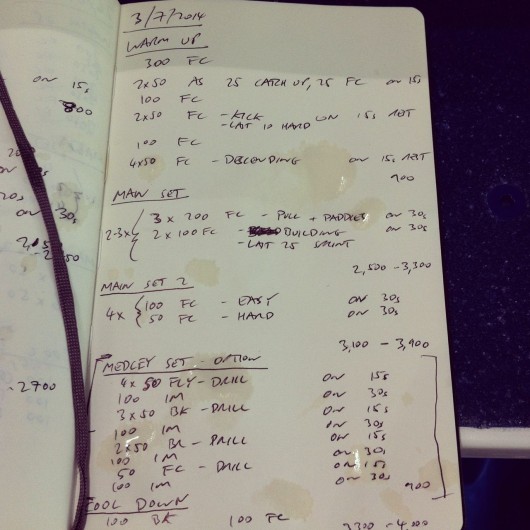 3/7/2014
WARM UP
300 FC
2x50 AS 25 CATCH UP, 25 FC ON 15s
100 FC
2x50 FC - KICK ON 15s REST
- LAST 10 HARD
100 FC
4x50 FC - DESCENDING ON 15s REST
900
MAIN SET
2-3x { 3 x 200 FC - PULL + PADDLES ON 30s
2 x 100 FC - BUILDING ON 30s
- LAST 25 SPRINT
2,500 - 3,300
MAIN SET 2
4x { 100 FC - EASY ON 30s
50 FC - HARD ON 30s
3,100 - 3,900
MEDLEY SET - OPTION
4x 50 FLY - DRILL ON 15s
100 IM ON 30s
3x50 BK - DRILL ON 15s
100 IM ON 30s
2x50 BR - DRILL ON 15s
100 IM ON 30s
50 FC - DRILL ON 15s
100 IM ON 30s
900
COOL DOWN
100 BK 100 FC
ON 15s
800
ON 30s
-2700